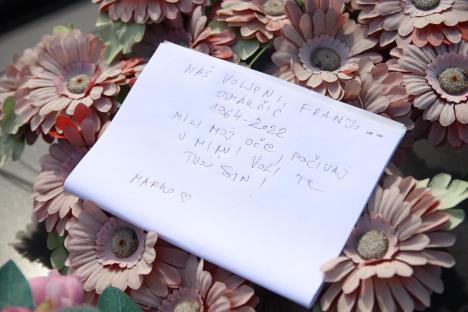 NAŠ VOLJENI FRANJO...
OSMAKČIĆ
1964-2022
MILI MOJ OČE, POČIVAJ
U MIRU! VOLI TE
TVOJ SIN!
MARKO ♡